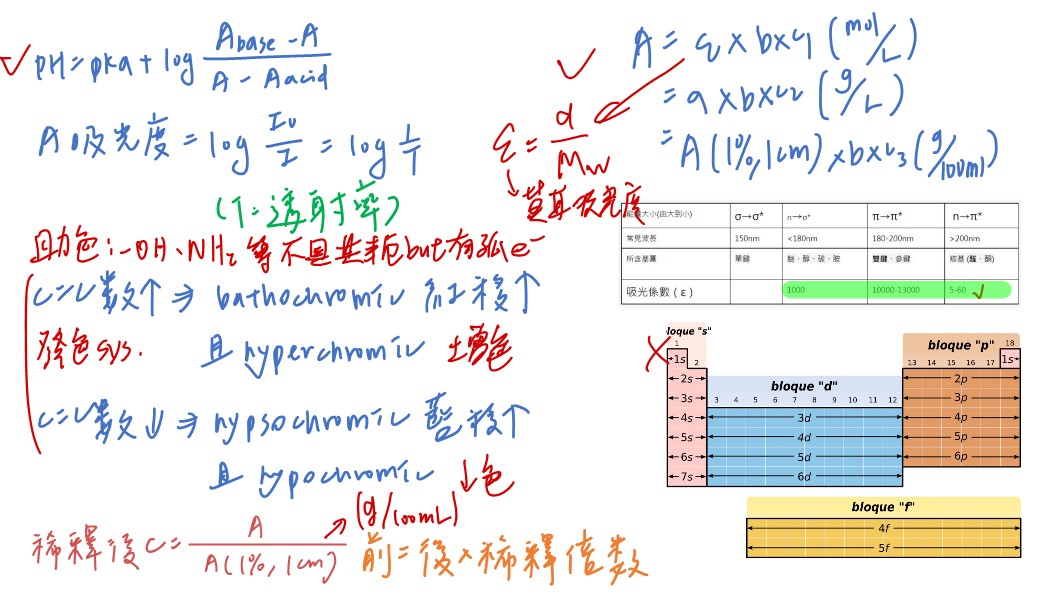 pH=pka+log (Abase-A)/(A-Aacid)
A 吸光度=log I₀/I=log 1/T
(T=透射率)
助色:-OH、NH₂ 等不具共軛but有孤e⁻
C=C數↑⇒bathochromic 紅移↑
發色sys. 且hyperchromic 增色
C=C數↓⇒hypsochromic 藍移↑
且hypochromic ↓色
稀釋後C=A/A(1%,1cm) →(g/100mL)
前=後×稀釋倍數
A=ε×b×c₁(mol/L)
=a×b×c₂(g/L)
=A(1%,1cm)×b×c₃(g/100ml)
ε=a/Mw
莫耳吸光度
能量大小(由大到小) σ→σ* n→σ* π→π* n→π*
常見波長 150nm <180nm 180-200nm >200nm
所含基團 單鍵 醚、醇、硫、胺 雙鍵、參鍵 羰基(醛、酮)
吸光係數(ε) 1000 10000-13000 5-60
bloque "s"
1
1s
2
2s
3s
4s
5s
6s
7s
bloque "d"
3 4 5 6 7 8 9 10 11 12
3d
4d
5d
6d
bloque "p"
18
13 14 15 16 17 1s
2p
3p
4p
5p
6p
bloque "f"
4f
5f